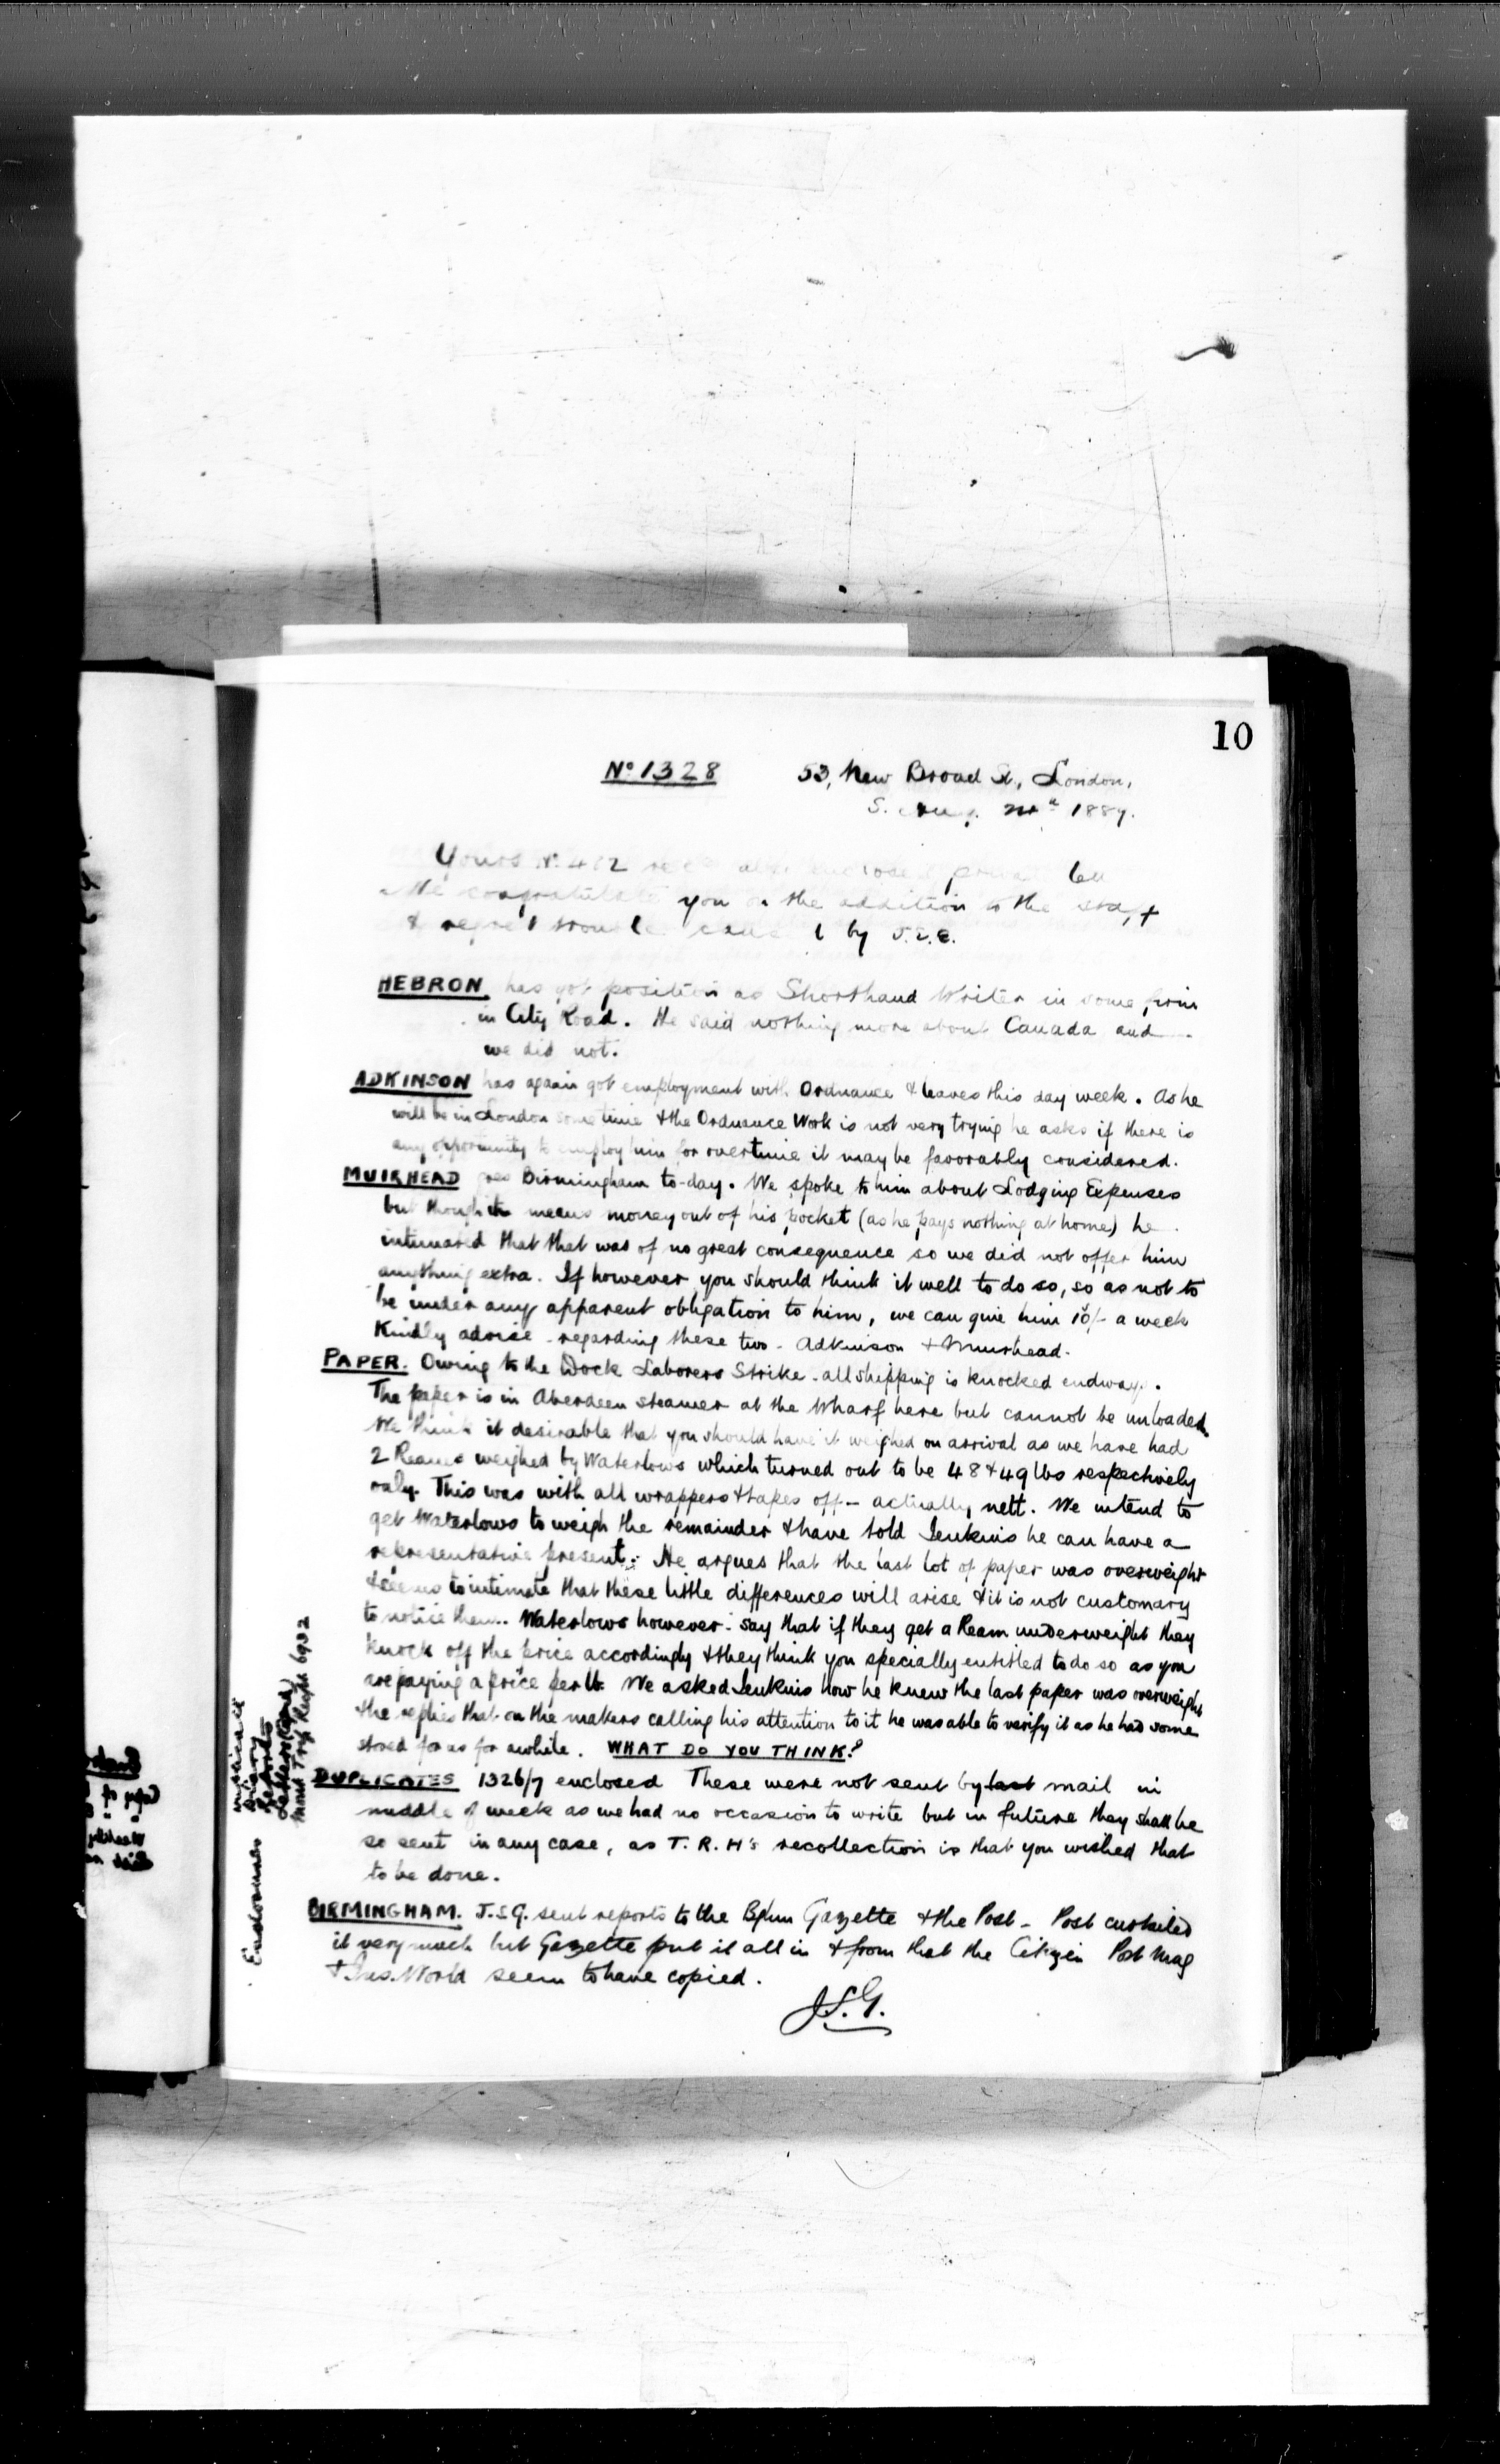 10
No 1328 53, New Broad St, London,
1889.
Yours No. 402
We congratulate you on the addition to the staff
& regret trouble caused by J.L.E.
HEBRON has got position as Shorthand Writer in some firm
in City Road. He said nothing more about Canada and
we did not.
ADKINSON has again got employment with Ordnance & leaves this day week. As he
will be in London some time & the Ordnance Work is not very trying he asks if there is
any opportunity to employ him for overtime it may be favorably considered.
MUIRHEAD Birmingham to-day. We spoke to him about Lodging Expenses
but though it means money out of his pocket (as he pays nothing at home) he
intimated that that was of no great consequence so we did not offer him
anything extra. If however you should think it well to do so, so as not to
be under any apparent obligation to him, we can give him 10/- a week
Kindly advise regarding these two - Adkinson & Muirhead.
PAPER. Owing to the Dock Laborers Strike - all shipping is knocked endways.
The paper is in Aberdeen steamer at the Wharf here but cannot be unloaded
We think it desirable that you should have it weighed on arrival as we have had
2 Reams weighed by Waterlows which turned out to be 48 & 49 lbs respectively
only. This was with all wrappers & tapes off - actually nett. We intend to
get Waterlows to weigh the remainder & have told Jenkins he can have a
representative present. He argues that the last lot of paper was overweight
& seems to intimate that these little differences will arise & it is not customary
to notice them. Waterlows however say that if they get a Ream underweight they
knock off the price accordingly & they think you specially entitled to do so as you
are paying a price per lb. We asked Jenkins how he knew the last paper was overweight
& he replies that on the makers calling his attention to it he was able to verify it as he had some
stored for us for awhile. WHAT DO YOU THINK?
DUPLICATES 1326/7 enclosed These were not sent by last mail in
middle of week as we had no occasion to write but in future they shall be
so sent in any case, as T. R. H's recollection is that you wished that
to be done.
BIRMINGHAM. J.S.G. sent reports to the B'ham Gazette & the Post - Post curtailed
it very much but Gazette put it all in & from that the Citizen Post Mag
& Ins. World seem to have copied.
J.S.G.
Diary
Reports